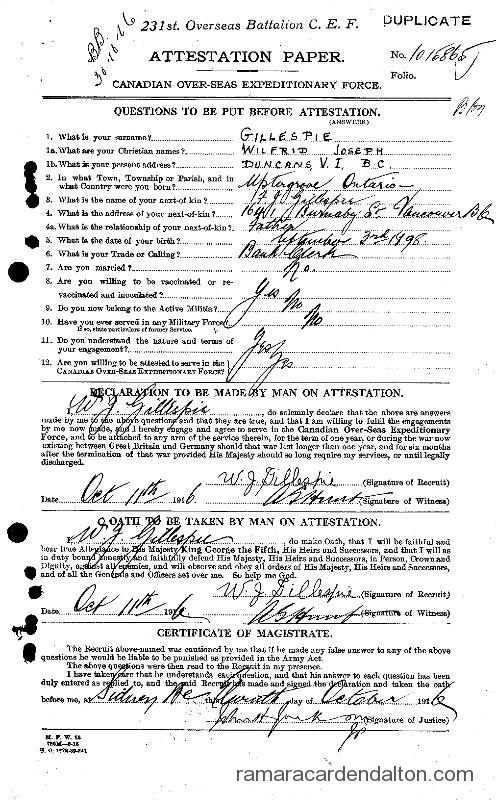 231st. Overseas Battalion C. E. F.
DUPLICATE
ATTESTATION PAPER.
No. 1015865
Folio.
CANADIAN OVER-SEAS EXPEDITIONARY FORCE.
QUESTIONS TO BE PUT BEFORE ATTESTATION.
(ANSWERS)
1. What is your surname? GILLESPIE
1a. What are your Christian names? WILFRID JOSEPH
1b. What is your present address? DUNCANS, V.I. B.C.
2. In what Town, Township or Parish, and in
what Country were you born? Uptergrove, Ontario
3. What is the name of your next-of-kin? F. J. Gillespie
4. What is the address of your next-of-kin? Burnaby St Vancouver B.C.
4a. What is the relationship of your next-of-kin? Father
5. What is the date of your birth? September 3rd 1898
6. What is your Trade or Calling? Bank Clerk
7. Are you married? No.
8. Are you willing to be vaccinated or re-
vaccinated and inoculated? Yes
9. Do you now belong to the Active Militia? No
10. Have you ever served in any Military Force? No
If so, state particulars of former Service.
11. Do you understand the nature and terms of
your engagement? Yes
12. Are you willing to be attested to serve in the
CANADIAN OVER-SEAS EXPEDITIONARY FORCE? Yes
DECLARATION TO BE MADE BY MAN ON ATTESTATION.
I, W. J. Gillespie, do solemnly declare that the above are answers
made by me to the above questions and that they are true, and that I am willing to fulfil the engagements
by me now made, and I hereby engage and agree to serve in the Canadian Over-Seas Expeditionary
Force, and to be attached to any arm of the service therein, for the term of one year, or during the war now
existing between Great Britain and Germany should that war last longer than one year, and for six months
after the termination of that war provided His Majesty should so long require my services, or until legally
discharged.
W. J Gillespie (Signature of Recruit)
Date Oct 11th 1916 (Signature of Witness)
OATH TO BE TAKEN BY MAN ON ATTESTATION.
I, W. J. Gillespie, do make Oath, that I will be faithful and
bear true Allegiance to His Majesty King George the Fifth, His Heirs and Successors, and that I will as
in duty bound honestly and faithfully defend His Majesty, His Heirs and Successors, in Person, Crown and
Dignity, against all enemies, and will observe and obey all orders of His Majesty, His Heirs and Successors,
and of all the Generals and Officers set over me. So help me God.
W. J. Gillespie (Signature of Recruit)
Date Oct 11th 1916 (Signature of Witness)
CERTIFICATE OF MAGISTRATE.
The Recruit above-named was cautioned by me that if he made any false answer to any of the above
questions he would be liable to be punished as provided in the Army Act.
The above questions were then read to the Recruit in my presence.
I have taken care that he understands each question, and that his answer to each question has been
duly entered as replied to, and the said Recruit has made and signed the declaration and taken the oath
before me, at Sidney BC this day of October 1916
(Signature of Justice)
M. F. W. 23
ramaracardendalton.com